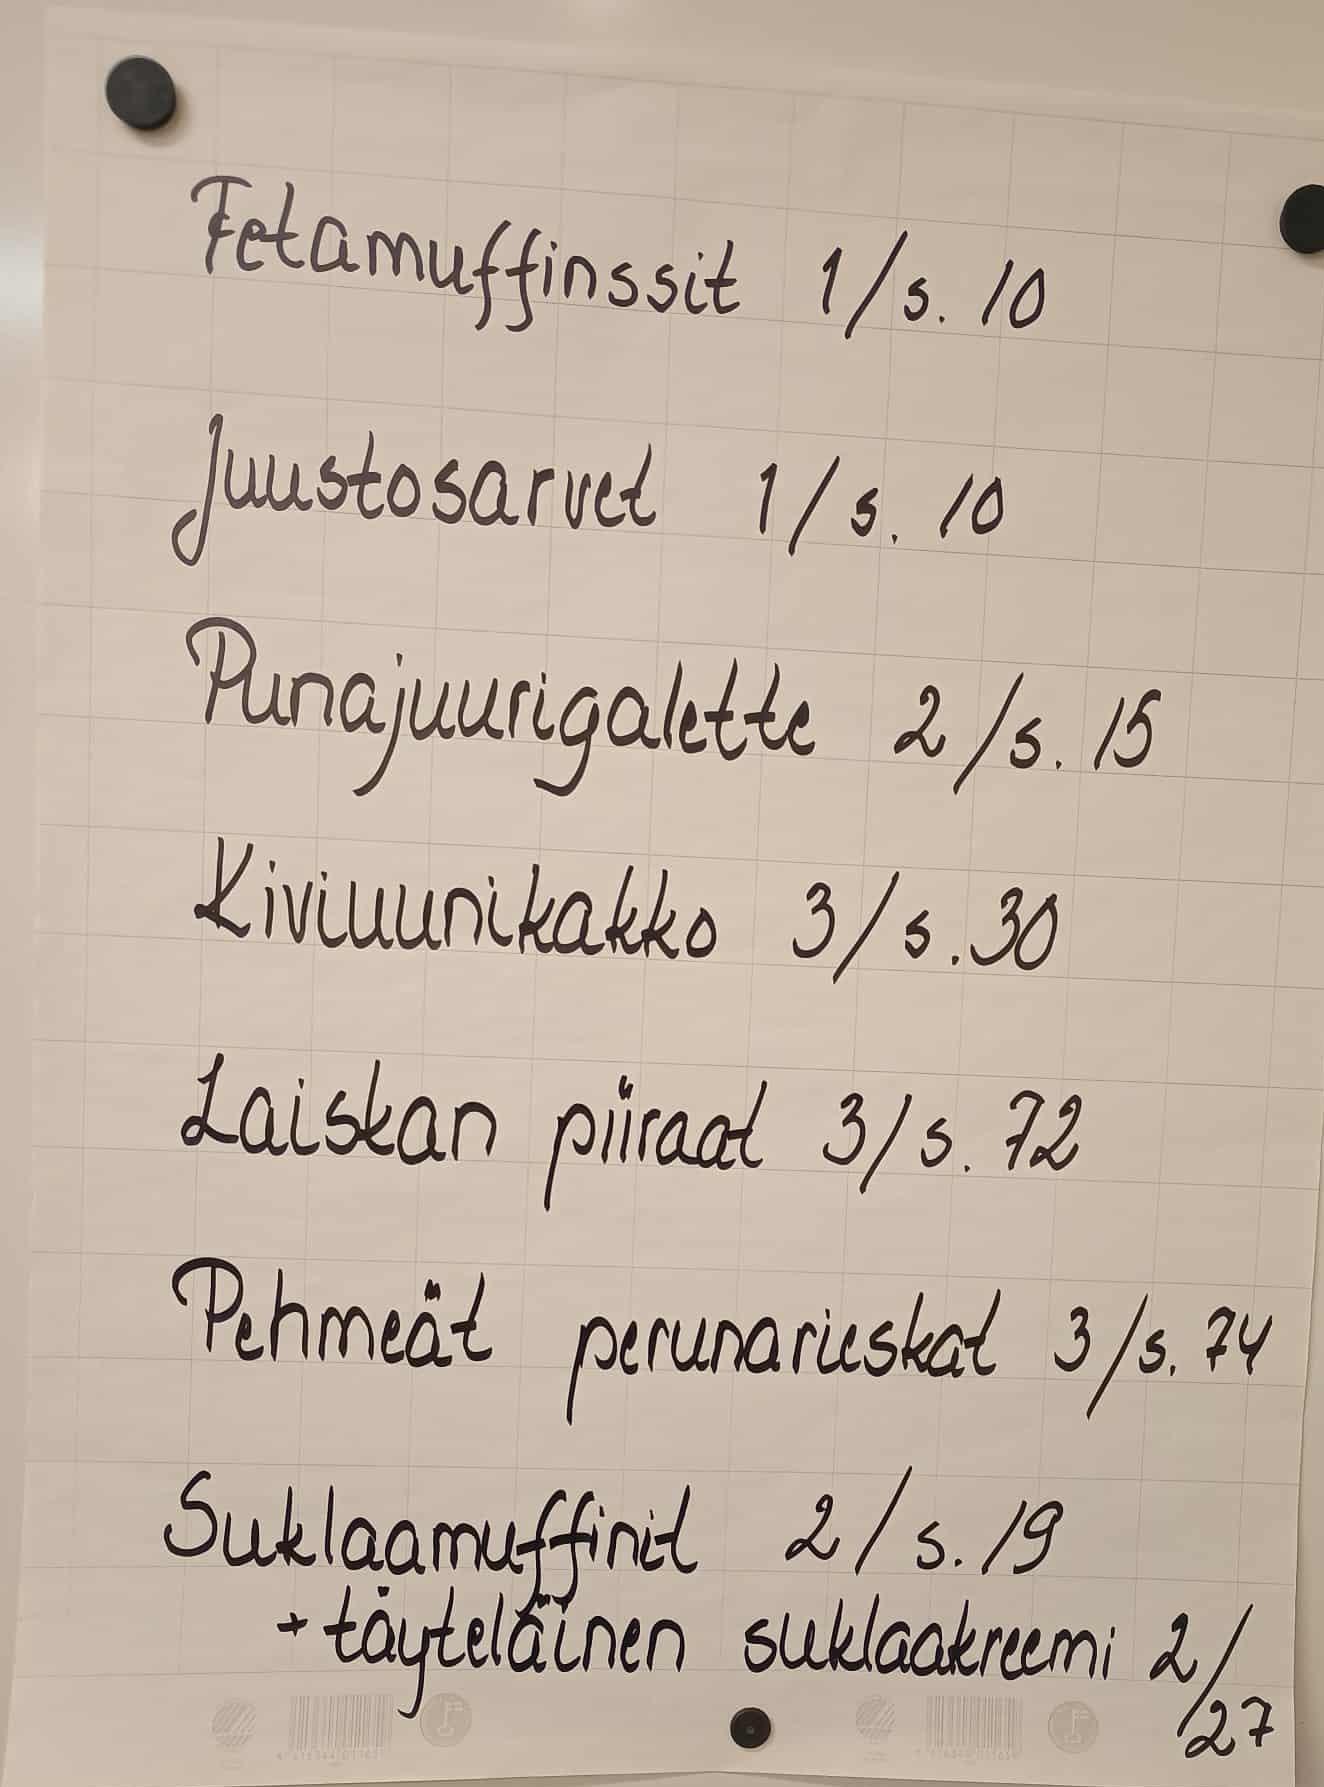 Fetamuffinssit 1/s. 10
Juustosarvet 1/s. 10
Punajuurigalette 2/s. 15
Kiviuunikakko 3/s. 30
Laiskan piiraat 3/s. 72
Pehmeät perunarieskat 3/s. 74
Suklaamuffinit 2/s. 19
+ täyteläinen suklaakreemi 2/
27